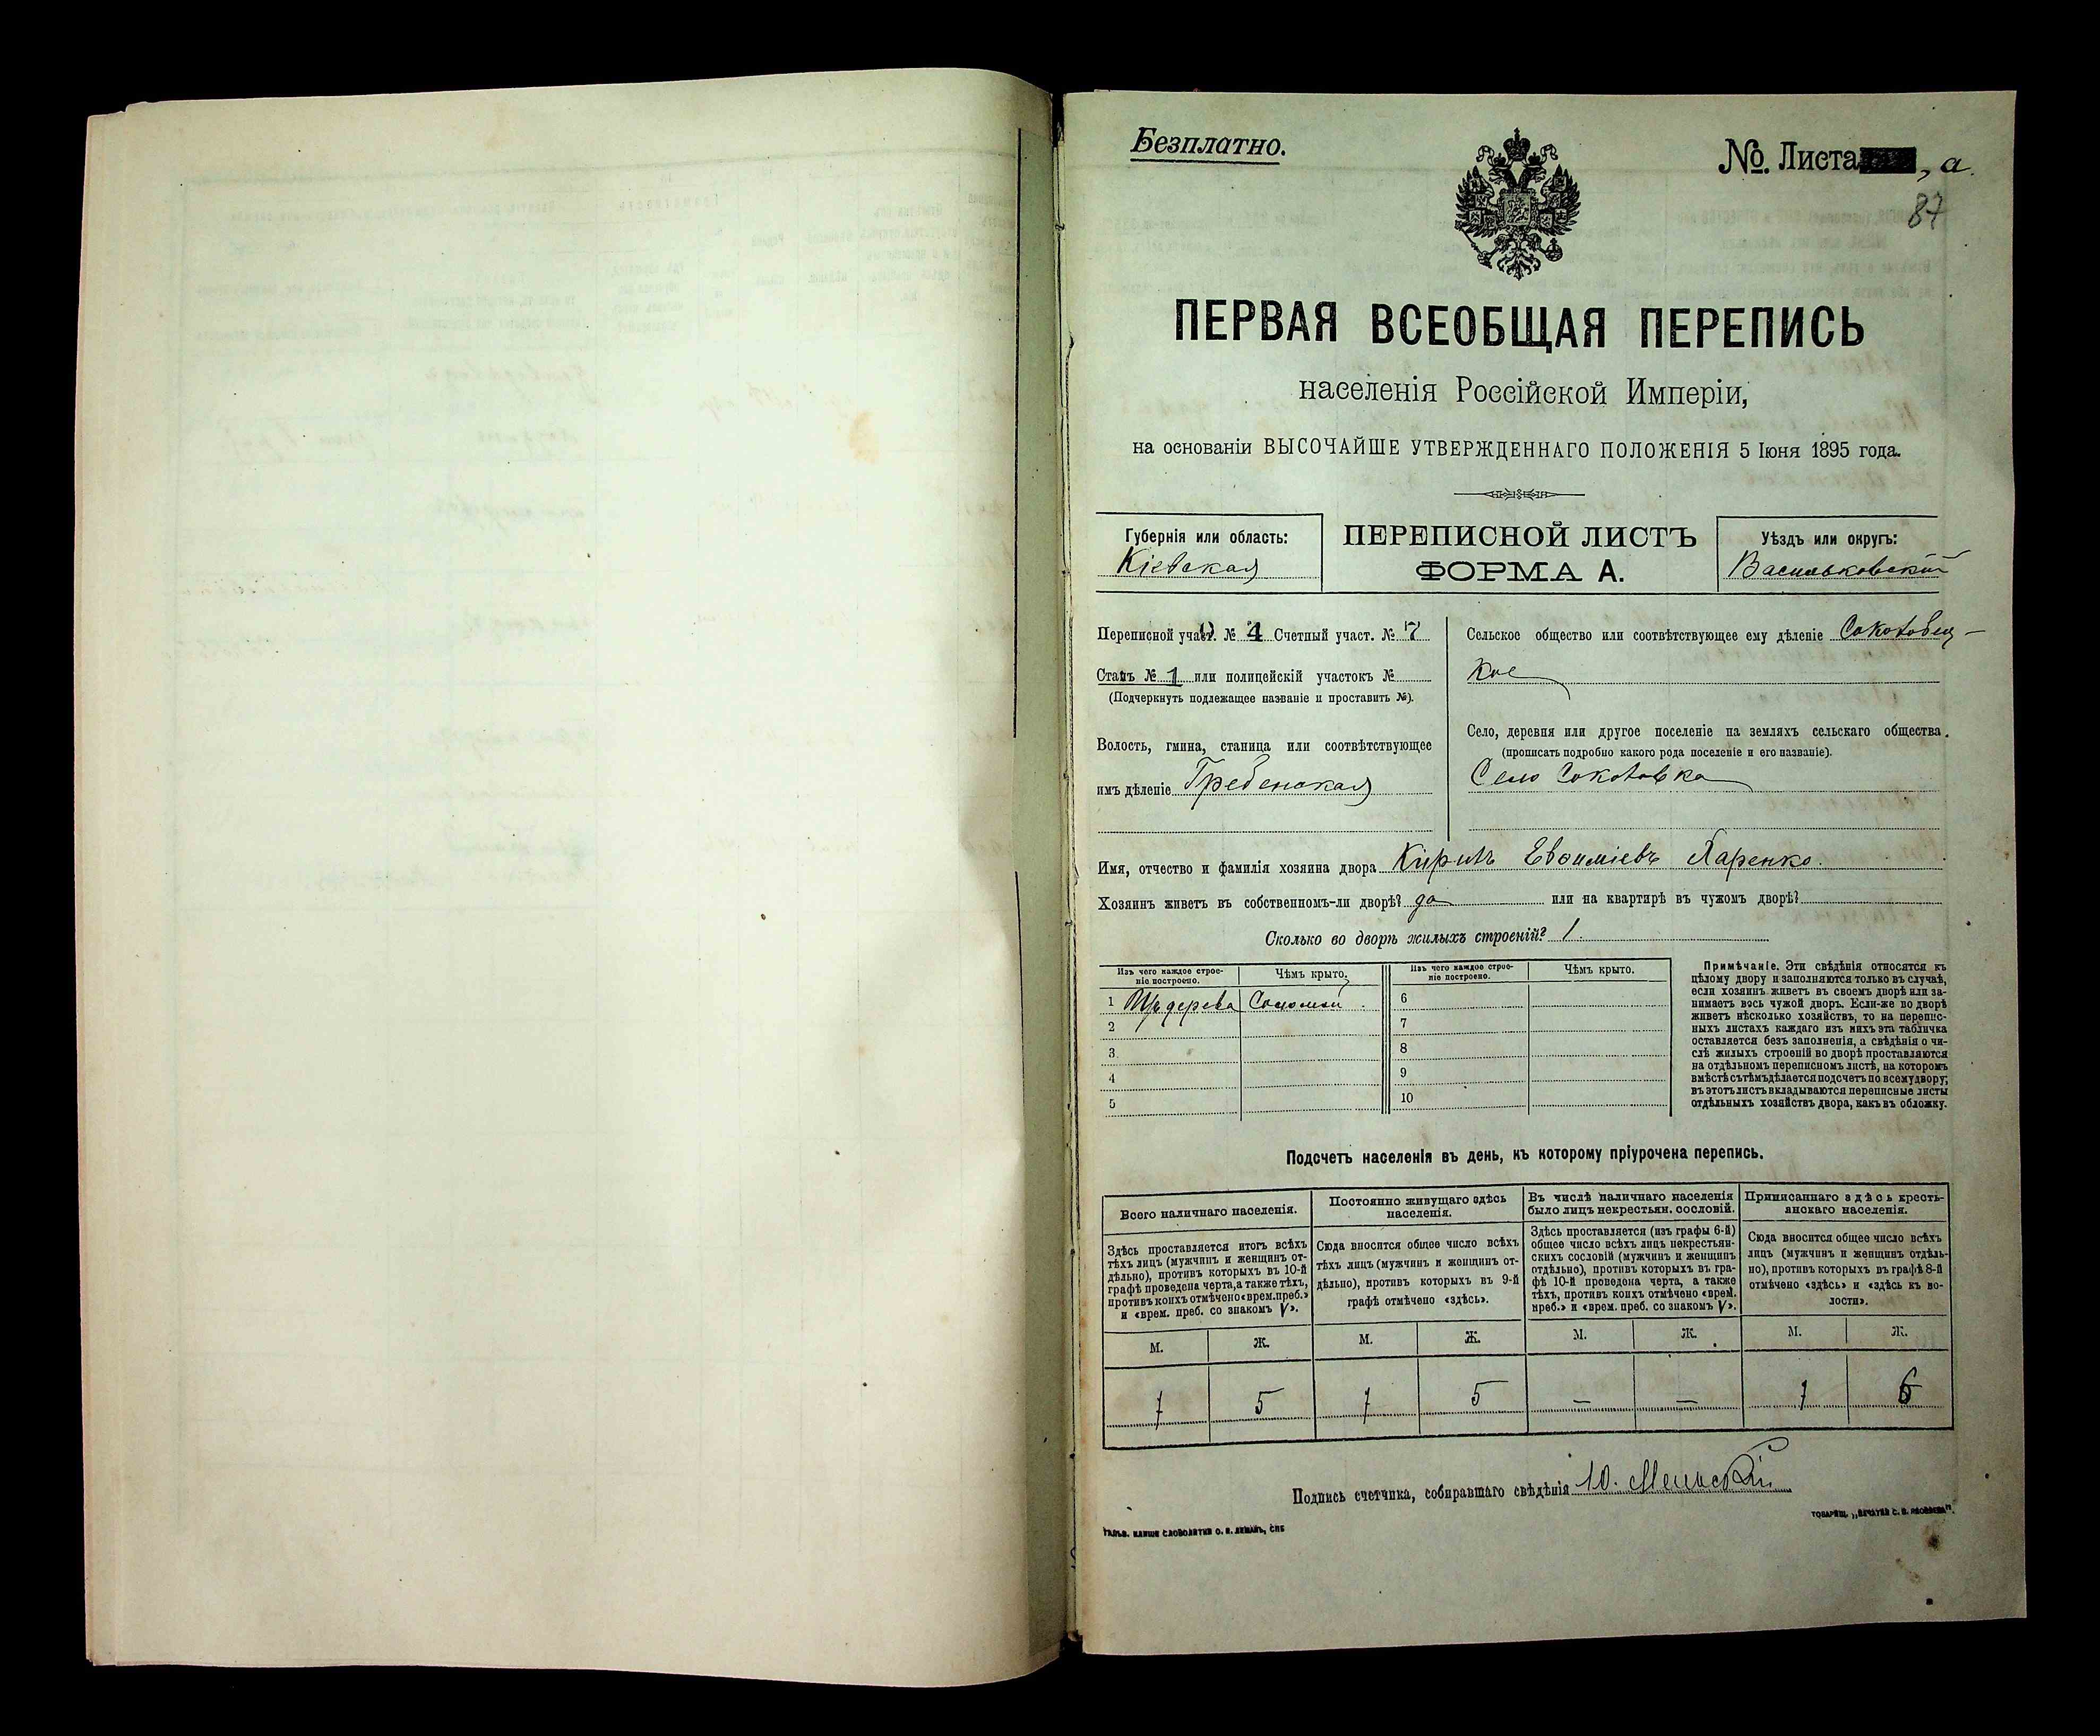 Безплатно.
№ Листа , а.
87
ПЕРВАЯ ВСЕОБЩАЯ ПЕРЕПИСЬ
населенія Россійской Имперіи,
на основаніи ВЫСОЧАЙШЕ УТВЕРЖДЕННАГО ПОЛОЖЕНІЯ 5 Іюня 1895 года.
Губернія или область:
Кіевская
ПЕРЕПИСНОЙ ЛИСТЪ
ФОРМА А.
Уѣздъ или округъ:
Васильковскій
Переписной участ. № 4 Счетный участ. № 7
Станъ № 1 или полицейскій участокъ №
(Подчеркнуть подлежащее названіе и проставить №).
Волость, гмина, станица или соотвѣтствующее
имъ дѣленіе Гребенская
Сельское общество или соотвѣтствующее ему дѣленіе
кое
Село, деревня или другое поселеніе на земляхъ сельскаго общества.
(прописать подробно какого рода поселеніе и его названіе).
Село
Имя, отчество и фамилія хозяина двора Кирилъ Евѳиміевъ
Хозяинъ живетъ въ собственномъ-ли дворѣ? да или на квартирѣ въ чужомъ дворѣ?
Сколько во дворѣ жилыхъ строеній? 1.
Изъ чего каждое строе-
ніе построено.
Чѣмъ крыто.
Изъ чего каждое строе-
ніе построено.
Чѣмъ крыто.
1 Изъ дерева Соломой
2
3
4
5
6
7
8
9
10
Примѣчаніе. Эти свѣдѣнія относятся къ
цѣлому двору и заполняются только въ случаѣ,
если хозяинъ живетъ въ своемъ дворѣ или за-
нимаетъ весь чужой дворъ. Если-же во дворѣ
живетъ нѣсколько хозяйствъ, то на перепис-
ныхъ листахъ каждаго изъ нихъ эта табличка
оставляется безъ заполненія, а свѣдѣнія о чи-
слѣ жилыхъ строеній во дворѣ проставляются
на отдѣльномъ переписномъ листѣ, на которомъ
вмѣстѣ съ тѣмъ дѣлается подсчетъ по всему двору;
въ этотъ листъ вкладываются переписные листы
отдѣльныхъ хозяйствъ двора, какъ въ обложку.
Подсчетъ населенія въ день, къ которому пріурочена перепись.
Всего наличнаго населенія.
Здѣсь проставляется итогъ всѣхъ
тѣхъ лицъ (мужчинъ и женщинъ от-
дѣльно), противъ которыхъ въ 10-й
графѣ проведена черта, а также тѣхъ,
противъ коихъ отмѣчено «врем. преб.»
и «врем. преб. со знакомъ V».
Постоянно живущаго здѣсь
населенія.
Сюда вносится общее число всѣхъ
тѣхъ лицъ (мужчинъ и женщинъ от-
дѣльно), противъ которыхъ въ 9-й
графѣ отмѣчено «здѣсь».
Въ числѣ наличнаго населенія
было лицъ некрестьян. сословій.
Здѣсь проставляется (изъ графы 6-й)
общее число всѣхъ лицъ некрестьян-
скихъ сословій (мужчинъ и женщинъ
отдѣльно), противъ которыхъ въ гра-
фѣ 10-й проведена черта, а также
тѣхъ, противъ коихъ отмѣчено «врем.
преб.» и «врем. преб. со знакомъ V».
Приписаннаго здѣсь кресть-
янскаго населенія.
Сюда вносится общее число всѣхъ
лицъ (мужчинъ и женщинъ отдѣль-
но), противъ которыхъ въ графѣ 8-й
отмѣчено «здѣсь» и «здѣсь къ во-
лости».
М. Ж. М. Ж. М. Ж. М. Ж.
1 5 1 5 — — 1
Подпись счетчика, собиравшаго свѣдѣнія Ю.